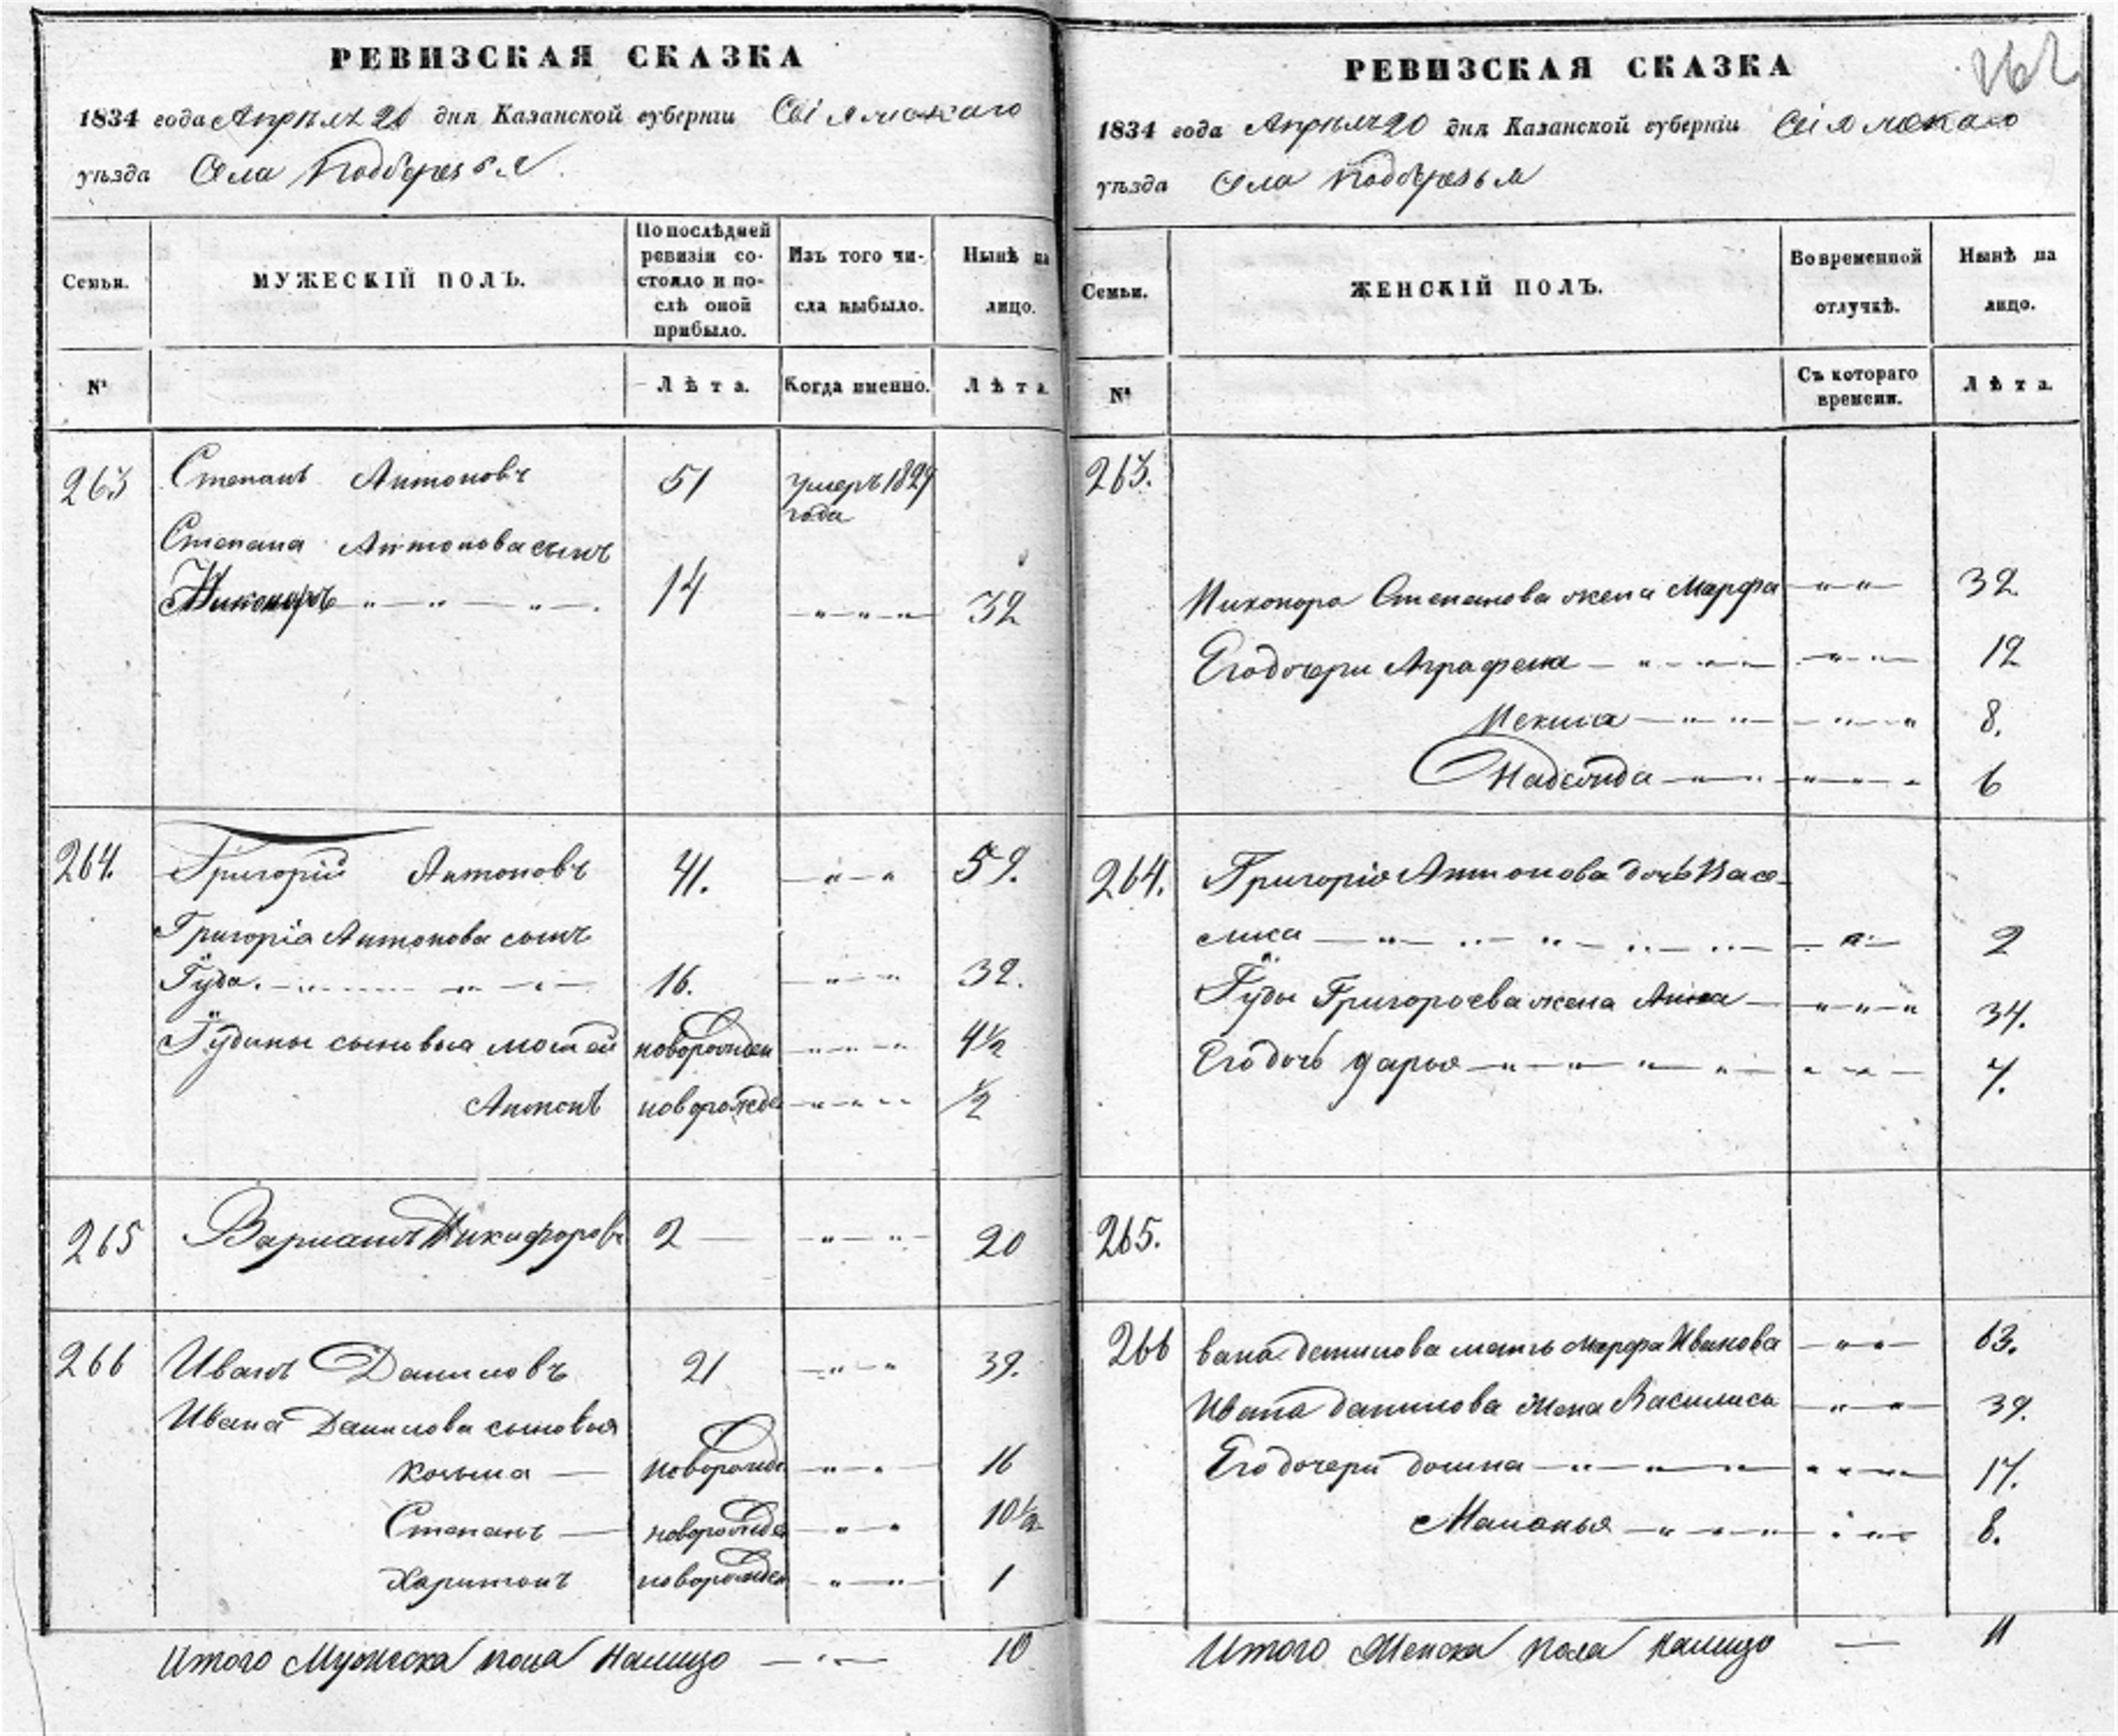 РЕВИЗСКАЯ СКАЗКА
1834 года Апрѣля 20 дня Казанской губерніи
уѣзда Села Подберезья
Семьи.
МУЖЕСКІЙ ПОЛЪ.
По послѣдней
ревизіи со-
стояло и по-
слѣ оной
прибыло.
Изъ того чи-
сла выбыло.
Нынѣ на
лицо.
№
Лѣта.
Когда именно.
Лѣта.
263 Степанъ Антоновъ 51 умеръ 1829
года
Степана Антонова сынъ
Никоноръ 14 32
264. Григорій Антоновъ 41. 59.
Григорія Антонова сынъ
Гуда. 16. 32.
Гудины сыновья новорожден 4½
Антонъ новорожде ½
265 Никифоровъ 2 20
266 Иванъ Даниловъ 21 39.
Ивана Данилова сыновья
Козьма новорожде 16
Степанъ новорожде 10½
Харитонъ новорожден 1
Итого Мужеска пола налицо 10
262
РЕВИЗСКАЯ СКАЗКА
1834 года Апрѣля 20 дня Казанской губерніи
уѣзда Села Подберезья
Семьи.
ЖЕНСКІЙ ПОЛЪ.
Во временной
отлучкѣ.
Нынѣ на
лицо.
№
Съ котораго
времени.
Лѣта.
263.
Никонора Степанова жена Марфа 32
Его дочери Аграфена 12
8.
6
264. Григорія Антонова дочь Васе-
лиса 2
Гуды Григорьева жена Анна 34.
Его дочь Дарья 7.
265.
266 вана Данилова мать Марфа Иванова 63.
Ивана Данилова жена Василиса 39.
Его дочери Домна 17.
Маланья 8.
Итого Женска пола налицо 11